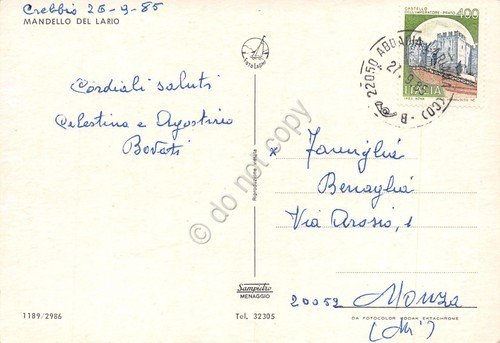 Crebbio 26-9-86
MANDELLO DEL LARIO
Cordiali saluti
Celestina e Agostino
Bovati
Famiglia
Benaglia
Via Arosio, 1
20052 Monza
(Mi)
Riproduzione vietata
Sampietro
MENAGGIO
1189/2986
Tel. 32305
DA FOTOCOLOR KODAK EKTACHROME
CASTELLO
DELL'IMPERATORE - PRATO
400
ITALIA
22050 ABBADIA LARIANA (CO) - B
do not copy